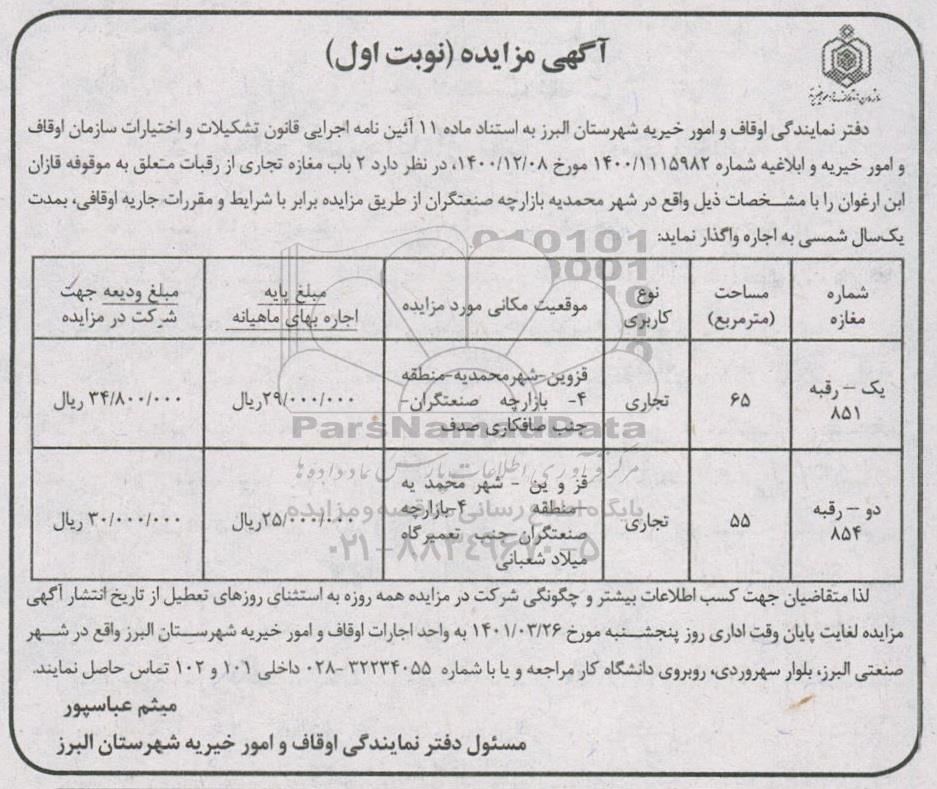 آگهی مزایده (نوبت اول)
دفتر نمایندگی اوقاف و امور خیریه شهرستان البرز به استناد ماده ۱۱ آئین نامه اجرایی قانون تشکیلات و اختیارات سازمان اوقاف
و امور خیریه و ابلاغیه شماره ۱۴۰۰/۱۱۱۵۹۸۲ مورخ ۱۴۰۰/۱۲/۰۸، در نظر دارد ۲ باب مغازه تجاری از رقبات متعلق به موقوفه قازان
ابن ارغوان را با مشخصات ذیل واقع در شهر محمدیه بازارچه صنعتگران از طریق مزایده برابر با شرایط و مقررات جاریه اوقافی، بمدت
یک‌سال شمسی به اجاره واگذار نماید:
شماره مغازه
مساحت (مترمربع)
نوع کاربری
موقعیت مکانی مورد مزایده
مبلغ پایه اجاره بهای ماهیانه
مبلغ ودیعه جهت شرکت در مزایده
یک – رقبه ۸۵۱
۶۵
تجاری
قزوین-شهرمحمدیه-منطقه
۴- بازارچه صنعتگران-
جنب صافکاری صدف
۲۹/۰۰۰/۰۰۰ریال
۳۴/۸۰۰/۰۰۰ ریال
دو – رقبه ۸۵۴
۵۵
تجاری
قز و ین - شهر محمد یه
-منطقه ۴-بازارچه
صنعتگران-جنب تعمیرگاه
میلاد شعبانی
۲۵/۰۰۰/۰۰۰ریال
۳۰/۰۰۰/۰۰۰ ریال
ParsNamadData
مرکز فرآوری اطلاعات پارس نماد داده ها
۰۲۱-۸۸۳۴۹۶۷۰-۵
لذا متقاضیان جهت کسب اطلاعات بیشتر و چگونگی شرکت در مزایده همه روزه به استثنای روزهای تعطیل از تاریخ انتشار آگهی
مزایده لغایت پایان وقت اداری روز پنجشنبه مورخ ۱۴۰۱/۰۳/۲۶ به واحد اجارات اوقاف و امور خیریه شهرستان البرز واقع در شهر
صنعتی البرز، بلوار سهروردی، روبروی دانشگاه کار مراجعه و یا با شماره ۳۲۲۳۴۰۵۵ -۰۲۸ داخلی ۱۰۱ و ۱۰۲ تماس حاصل نمایند.
میثم عباسپور
مسئول دفتر نمایندگی اوقاف و امور خیریه شهرستان البرز